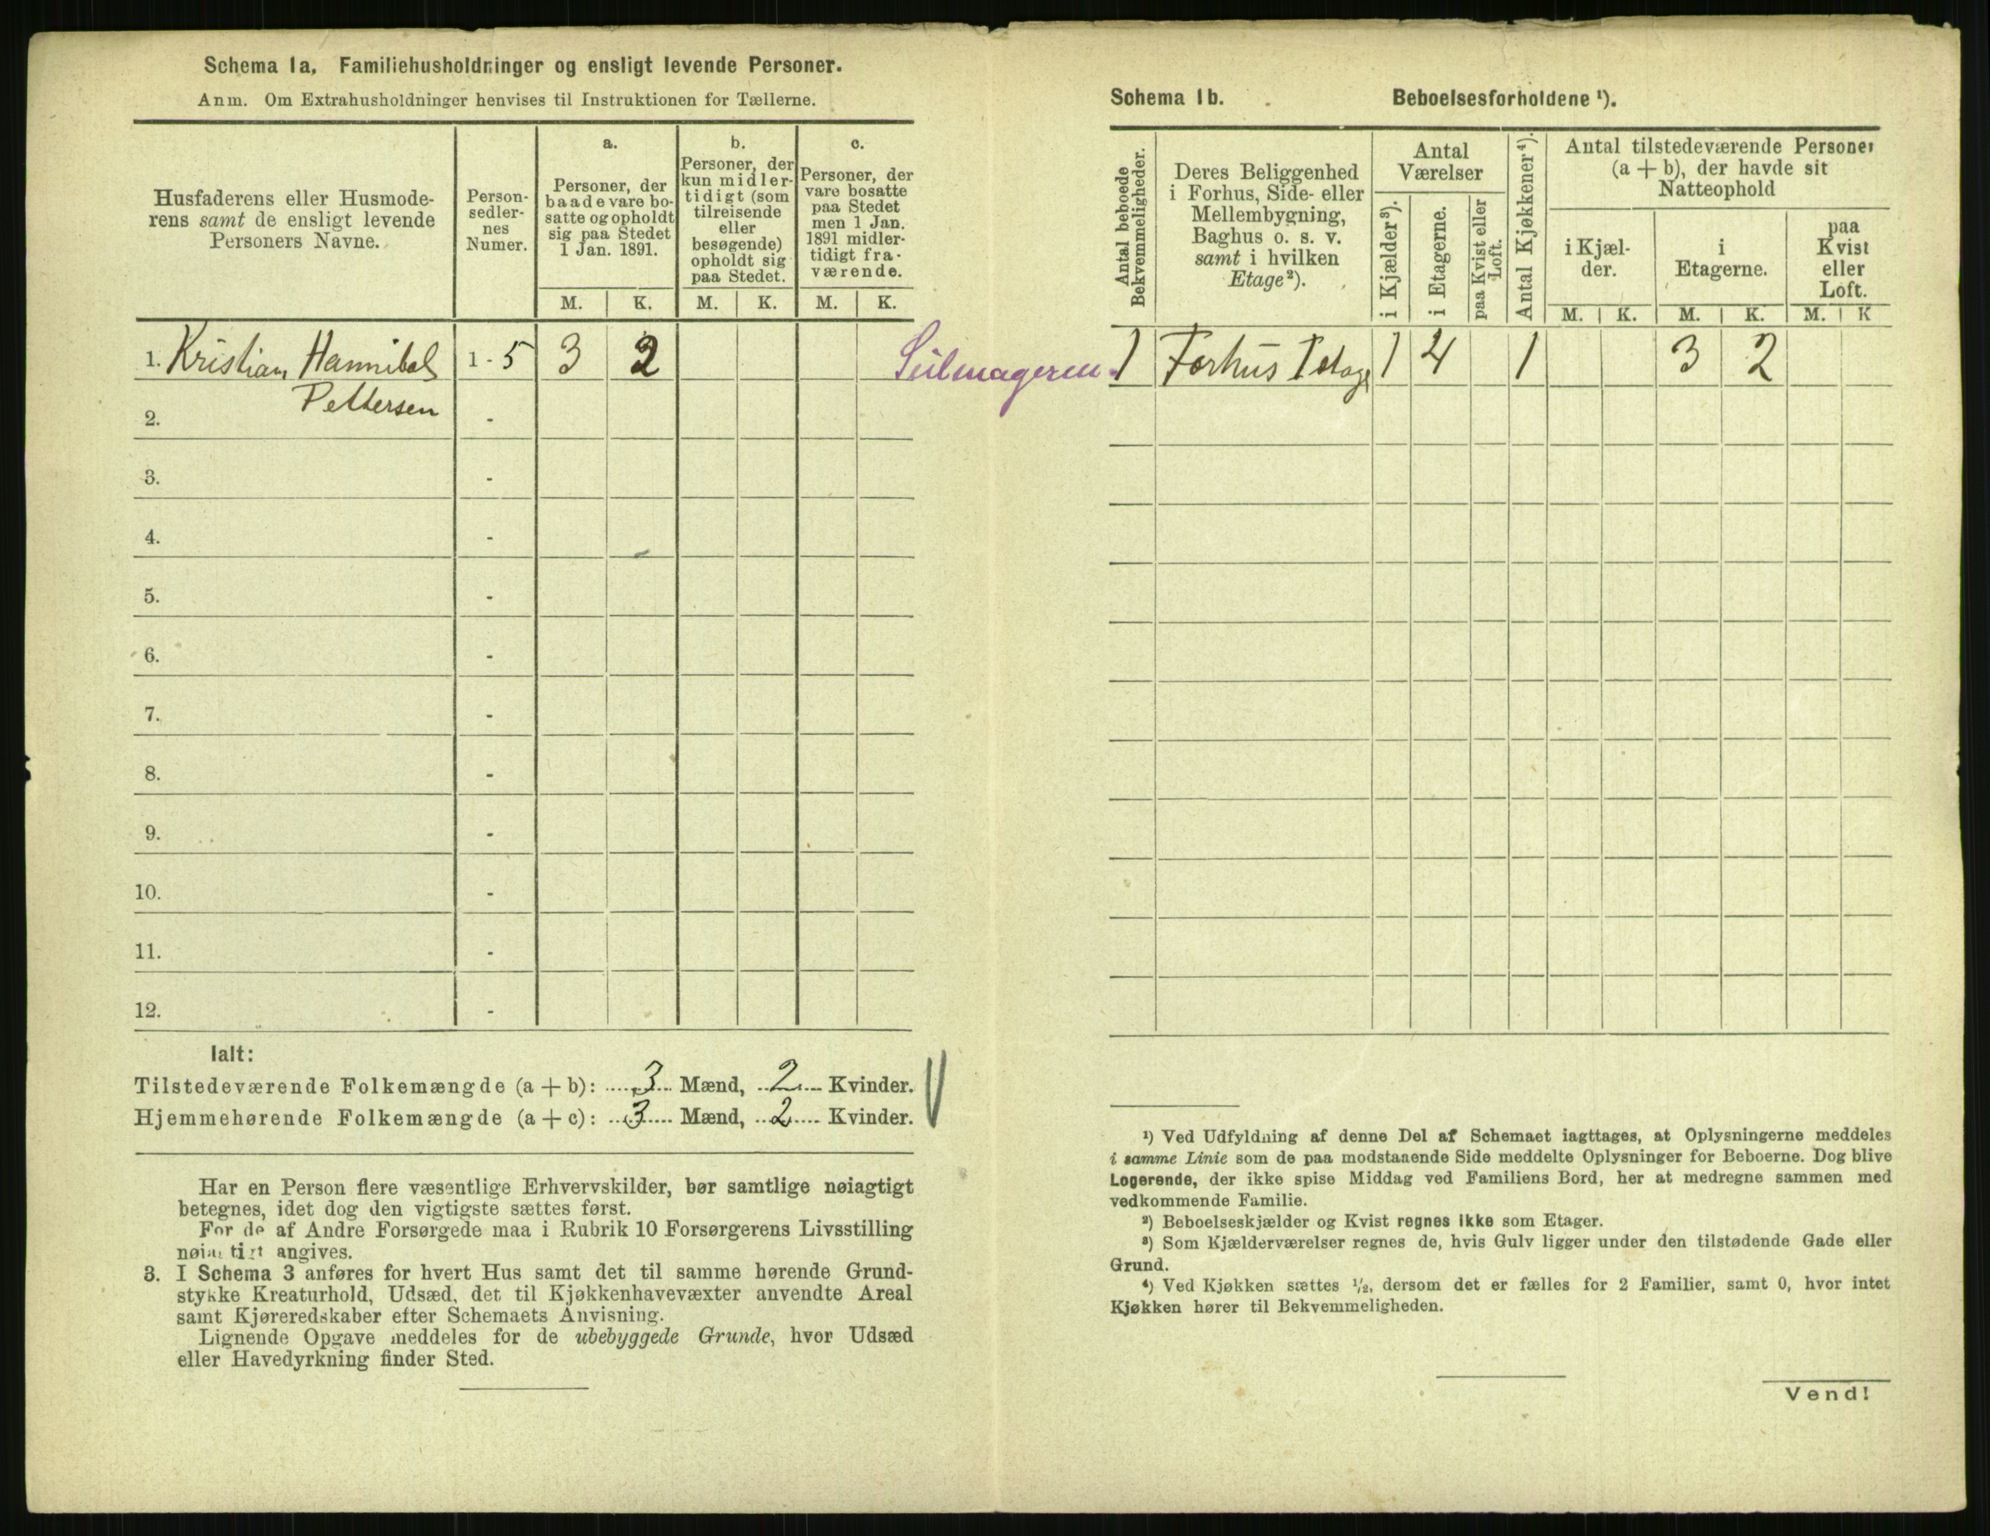 Schema 1a. Familiehusholdninger og ensligt levende Personer.
Anm. Om Extrahusholdninger henvises til Instruktionen for Tællerne.
Husfaderens eller Husmode-
rens samt de ensligt levende
Personers Navne.
Person-
sedler-
nes
Numer.
a.
Personer, der
baade vare bo-
satte og opholdt
sig paa Stedet
1 Jan. 1891.
b.
Personer, der
kun midler-
tidigt (som
tilreisende
eller
besøgende)
opholdt sig
paa Stedet.
c.
Personer, der
vare bosatte
paa Stedet
men 1 Jan.
1891 midler-
tidigt fra-
værende.
M. K. M. K. M. K.
1. Kristian Hannibal 1 - 5 3 2
Pettersen
2. -
3. -
4. -
5. -
6. -
7. -
8. -
9. -
10. -
11. -
12. -
Ialt:
Tilstedeværende Folkemængde (a + b): 3 Mænd, 2 Kvinder.
Hjemmehørende Folkemængde (a + c): 3 Mænd, 2 Kvinder.
Har en Person flere væsentlige Erhvervskilder, bør samtlige nøiagtigt
betegnes, idet dog den vigtigste sættes først.
For de af Andre Forsørgede maa i Rubrik 10 Forsørgerens Livsstilling
nøiagtigt angives.
3. I Schema 3 anføres for hvert Hus samt det til samme hørende Grund-
stykke Kreaturhold, Udsæd, det til Kjøkkenhavevæxter anvendte Areal
samt Kjøreredskaber efter Schemaets Anvisning.
Lignende Opgave meddeles for de ubebyggede Grunde, hvor Udsæd
eller Havedyrkning finder Sted.
Schema 1b. Beboelsesforholdene ¹).
Antal beboede
Bekvemmeligheder.
Deres Beliggenhed
i Forhus, Side- eller
Mellembygning,
Baghus o. s. v.
samt i hvilken
Etage²).
Antal
Værelser
i Kjælder³).
i Etagerne.
paa Kvist eller
Loft.
Antal Kjøkkener⁴).
Antal tilstedeværende Personer
(a + b), der havde sit
Natteophold
i Kjæl-
der.
i
Etagerne.
paa
Kvist
eller
Loft.
M. K. M. K. M. K
Seilmageren. 1 Forhus I Etage 1 4 1 3 2
¹) Ved Udfyldning af denne Del af Schemaet iagttages, at Oplysningerne meddeles
i samme Linie som de paa modstaaende Side meddelte Oplysninger for Beboerne. Dog blive
Logerende, der ikke spise Middag ved Familiens Bord, her at medregne sammen med
vedkommende Familie.
²) Beboelseskjælder og Kvist regnes ikke som Etager.
³) Som Kjælderværelser regnes de, hvis Gulv ligger under den tilstødende Gade eller
Grund.
⁴) Ved Kjøkken sættes ¹/₂, dersom det er fælles for 2 Familier, samt 0, hvor intet
Kjøkken hører til Bekvemmeligheden.
Vend!